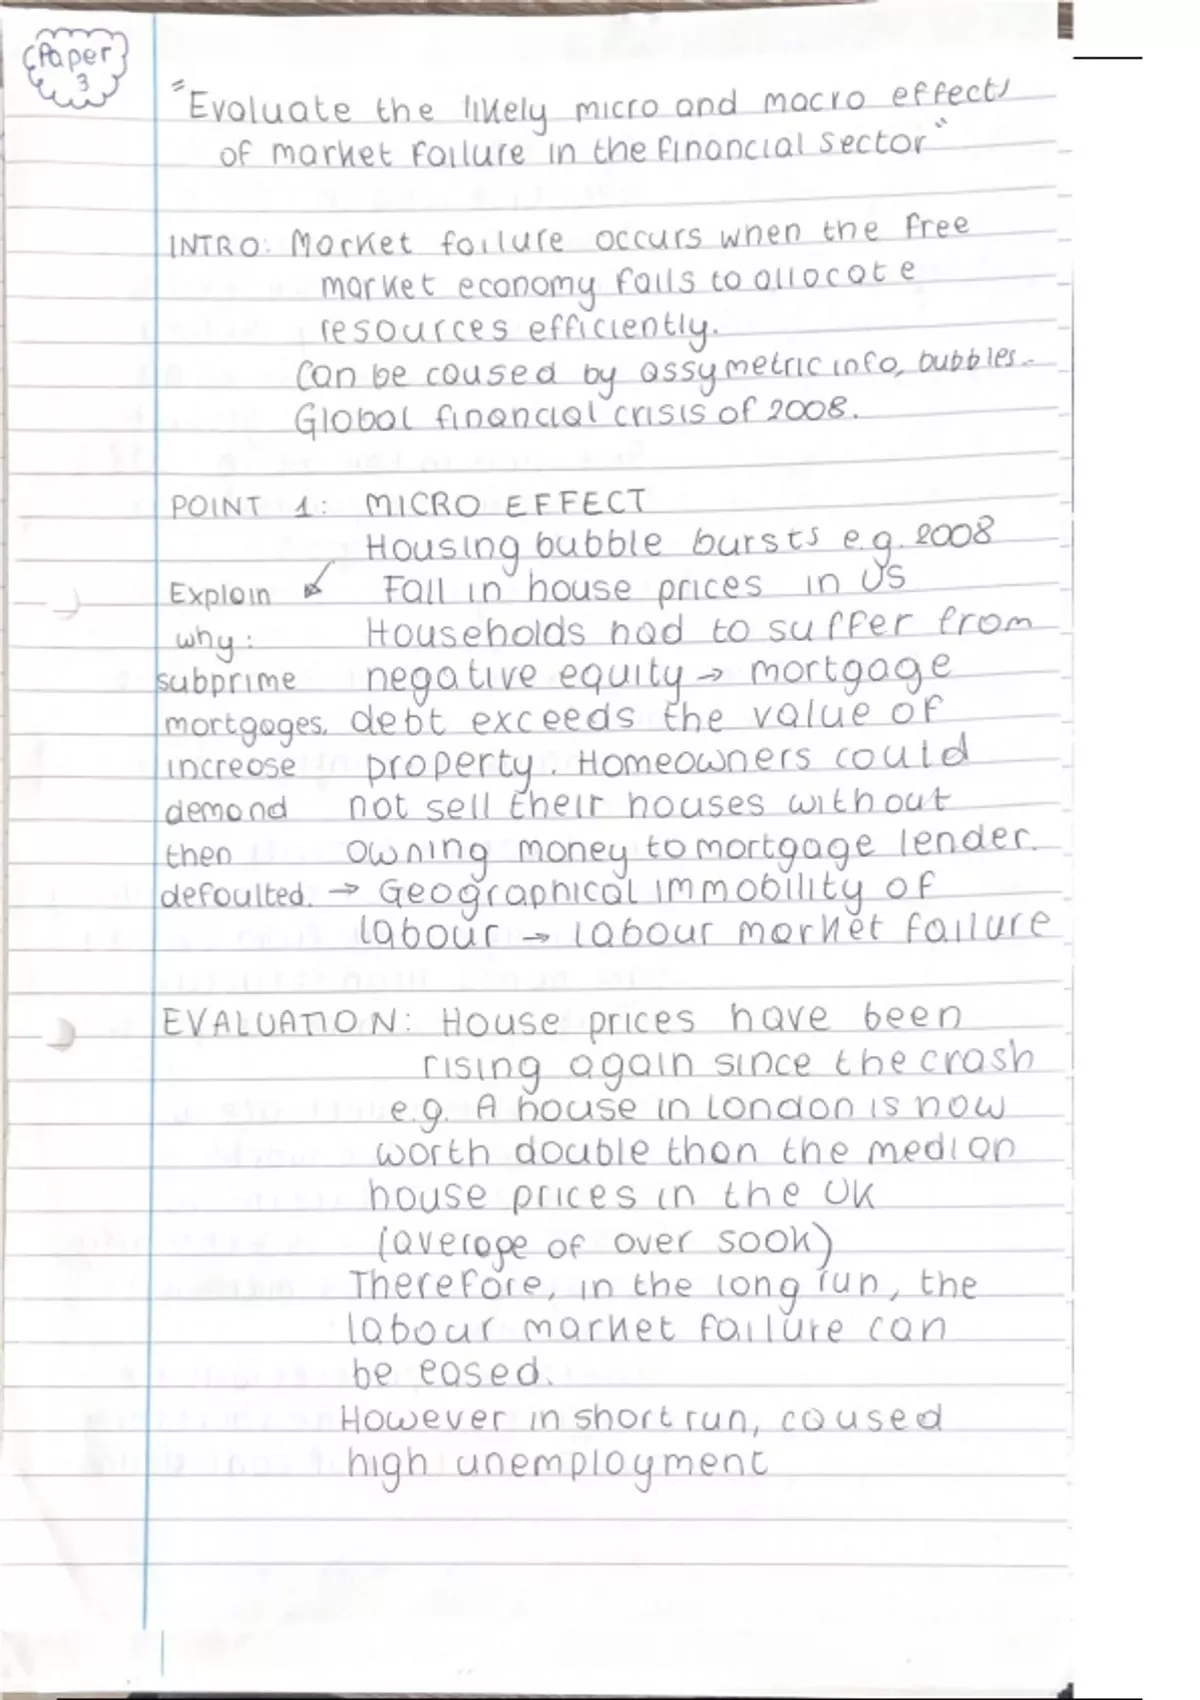 Paper
3
"Evaluate the likely micro and macro effects
of market failure in the financial sector"
INTRO: Market failure occurs when the free
market economy fails to allocate
resources efficiently.
Can be caused by assymetric info, bubbles.
Global financial crisis of 2008.
POINT 1: MICRO EFFECT
Housing bubble bursts e.g. 2008
Explain Fall in house prices in US
why: Households had to suffer from
subprime negative equity → mortgage
mortgages, debt exceeds the value of
increase property. Homeowners could
demand not sell their houses without
then owning money to mortgage lender.
defaulted. → Geographical immobility of
labour → labour market failure
EVALUATION: House prices have been
rising again since the crash
e.g. A house in London is now
worth double than the median
house prices in the UK
(average of over 500k)
Therefore, in the long run, the
labour market failure can
be eased.
However in short run, caused
high unemployment